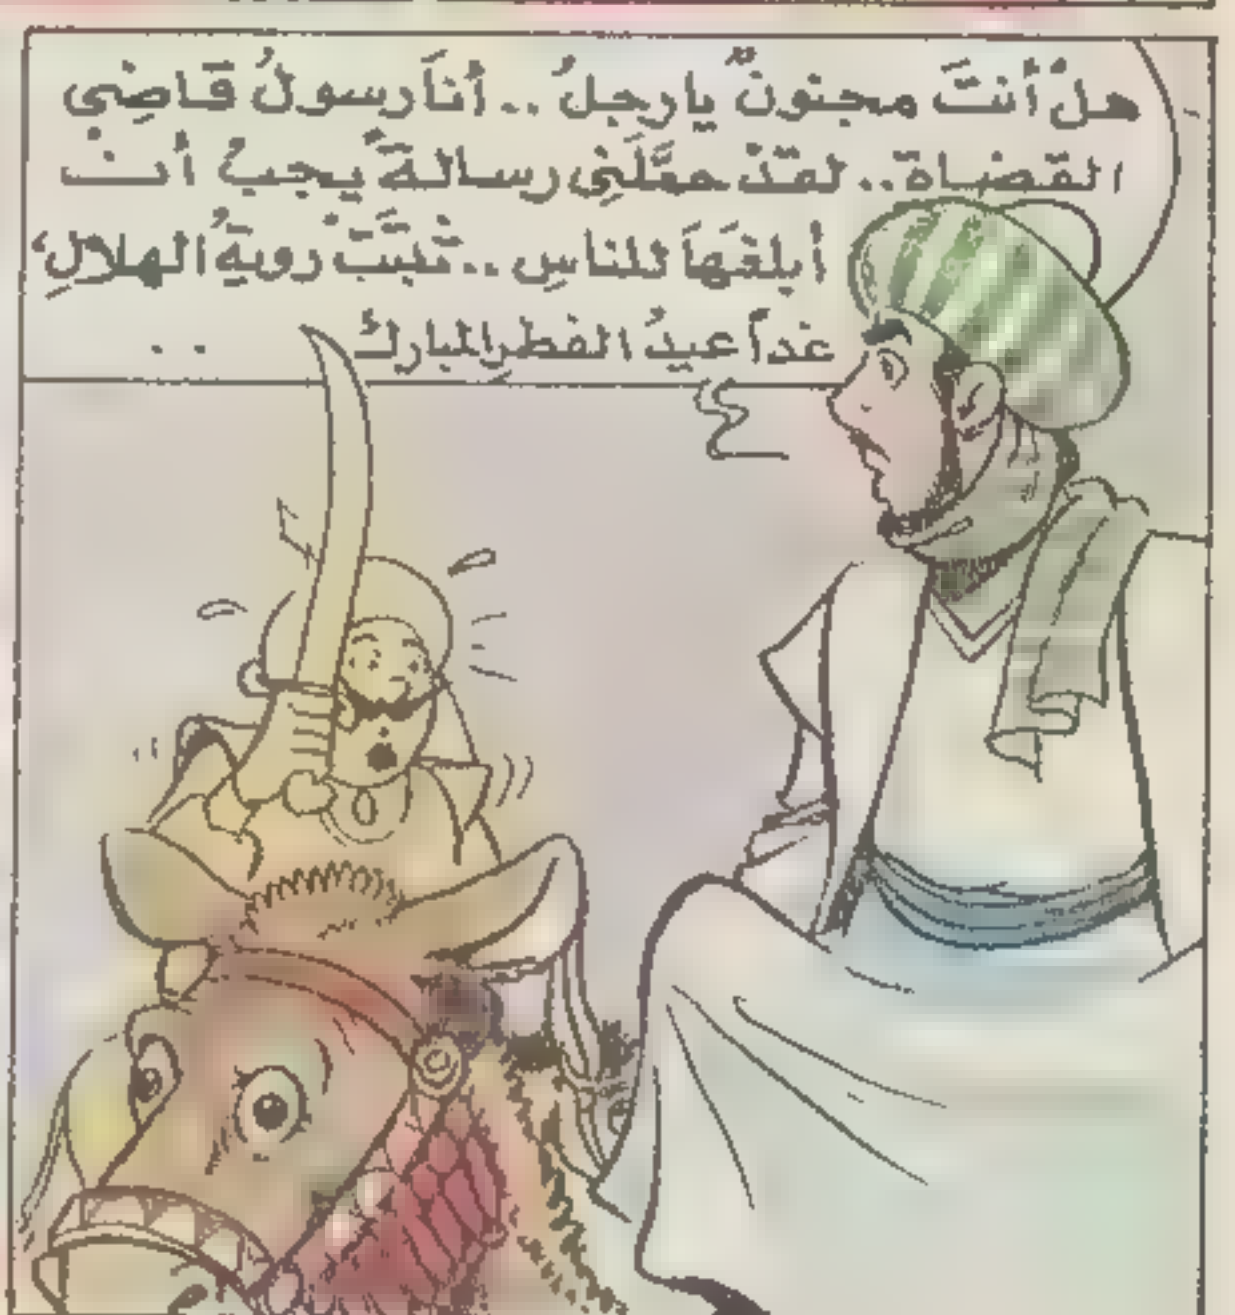 هلْ أنتَ مجنونٌ يارجلُ .. أناَ رسولُ قَاضِي
القضاة.. لقدْ حمَّلَنِي رسالةً يجبُ أنْ
أبلغَهَا للناسِ .. ثبتَتْ رويةُ الهلالِ،
غداً عيدُ الفطرِ المبارك ..